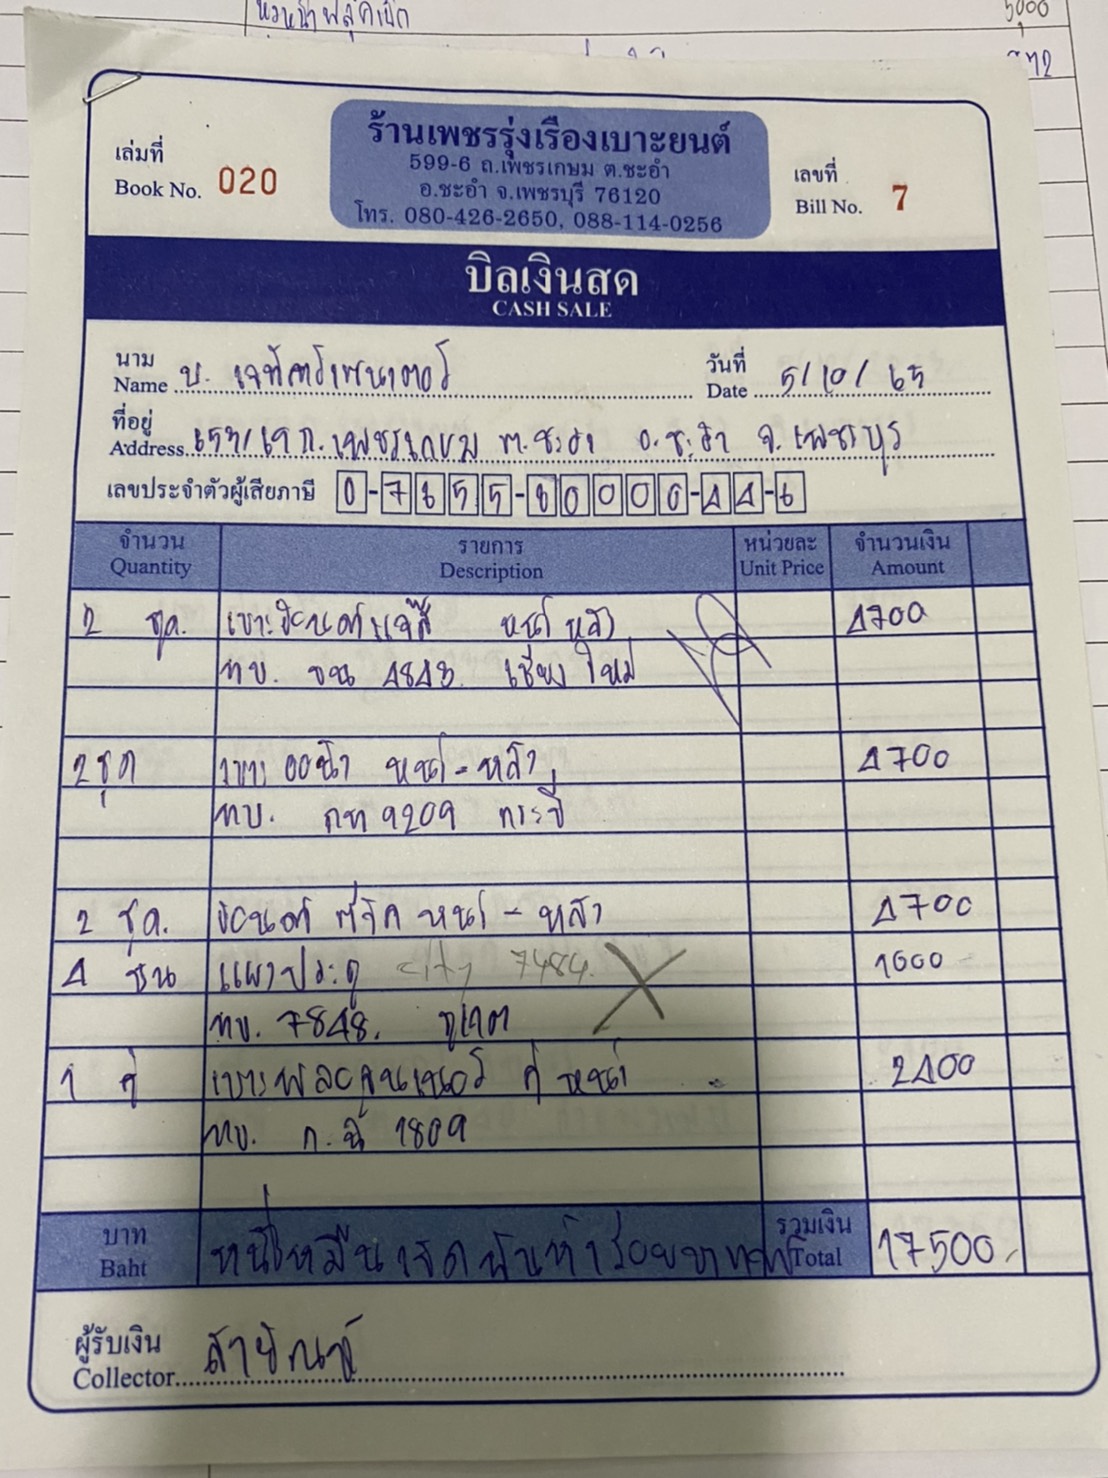 5,000
ร้านเพชรรุ่งเรืองเบาะยนต์
599-6 ถ.เพชรเกษม ต.ชะอำ
อ.ชะอำ จ.เพชรบุรี 76120
โทร. 080-426-2650, 088-114-0256
เล่มที่
Book No. 020
เลขที่
Bill No. 7
บิลเงินสด
CASH SALE
นาม
Name บ.
วันที่
Date 5/10/65
ที่อยู่
Address ถ.เพชรเกษม ต.ชะอำ อ.ชะอำ จ.เพชรบุรี
เลขประจำตัวผู้เสียภาษี
จำนวน รายการ หน่วยละ จำนวนเงิน
Quantity Description Unit Price Amount
2 ชุด. หน้า หลัง 4700
ทบ. ขน 4843. เชียงใหม่
2 ชุด เบาะ หน้า-หลัง 4700
ทบ. กท 9209 กระบี่
2 ชุด. หน้า - หลัง 4700
4 ชิ้น แผงประตู city 7484. 1000
ทบ. 7848. ภูเก็ต
1 คู่ คู่ หน้า 2400
ทบ. 1809
บาท หนึ่งหมื่นเจ็ดพันห้าร้อยบาท รวมเงิน 17500.-
Baht Total
ผู้รับเงิน
Collector